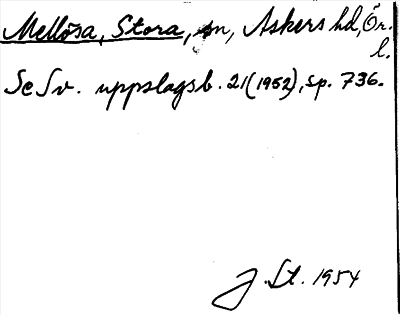 Mellösa, Stora, sn, Askers hd, Ör.
l.
Se Sv. uppslagsb. 21 (1952), sp. 736.
J. St. 1954